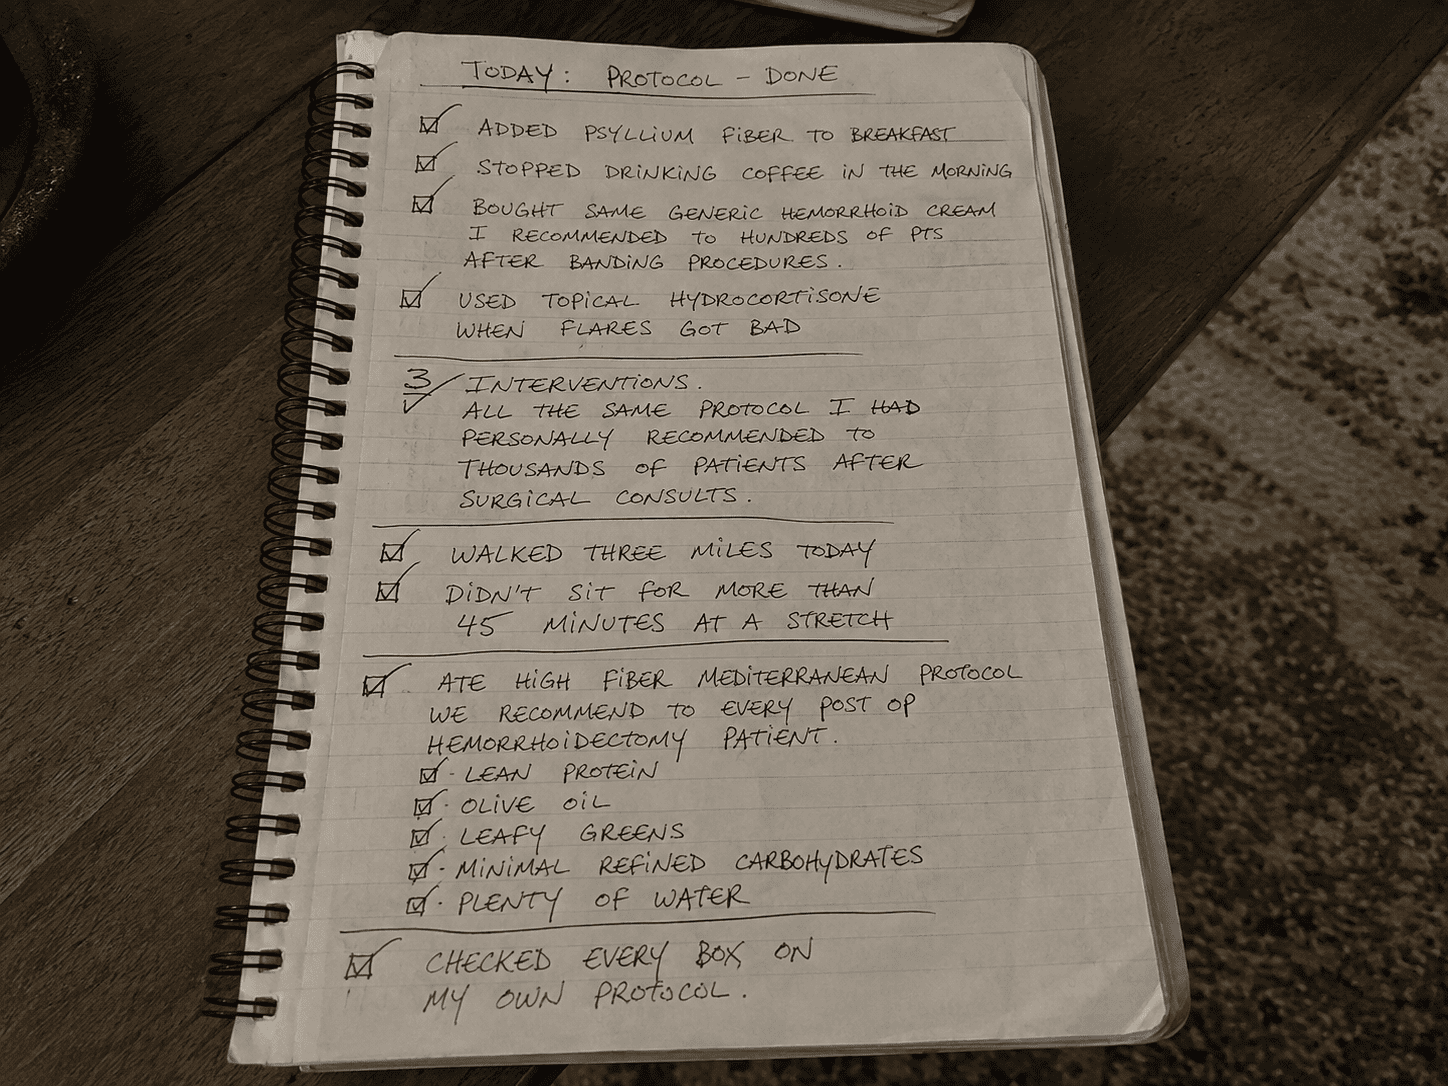 TODAY: PROTOCOL - DONE
ADDED PSYLLIUM FIBER TO BREAKFAST
STOPPED DRINKING COFFEE IN THE MORNING
BOUGHT SAME GENERIC HEMORRHOID CREAM
I RECOMMENDED TO HUNDREDS OF PTS
AFTER BANDING PROCEDURES.
USED TOPICAL HYDROCORTISONE
WHEN FLARES GOT BAD
3 INTERVENTIONS.
ALL THE SAME PROTOCOL I HAD
PERSONALLY RECOMMENDED TO
THOUSANDS OF PATIENTS AFTER
SURGICAL CONSULTS.
WALKED THREE MILES TODAY
DIDN'T SIT FOR MORE THAN
45 MINUTES AT A STRETCH
ATE HIGH FIBER MEDITERRANEAN PROTOCOL
WE RECOMMEND TO EVERY POST OP
HEMORRHOIDECTOMY PATIENT.
· LEAN PROTEIN
· OLIVE OIL
· LEAFY GREENS
· MINIMAL REFINED CARBOHYDRATES
· PLENTY OF WATER
CHECKED EVERY BOX ON
MY OWN PROTOCOL.